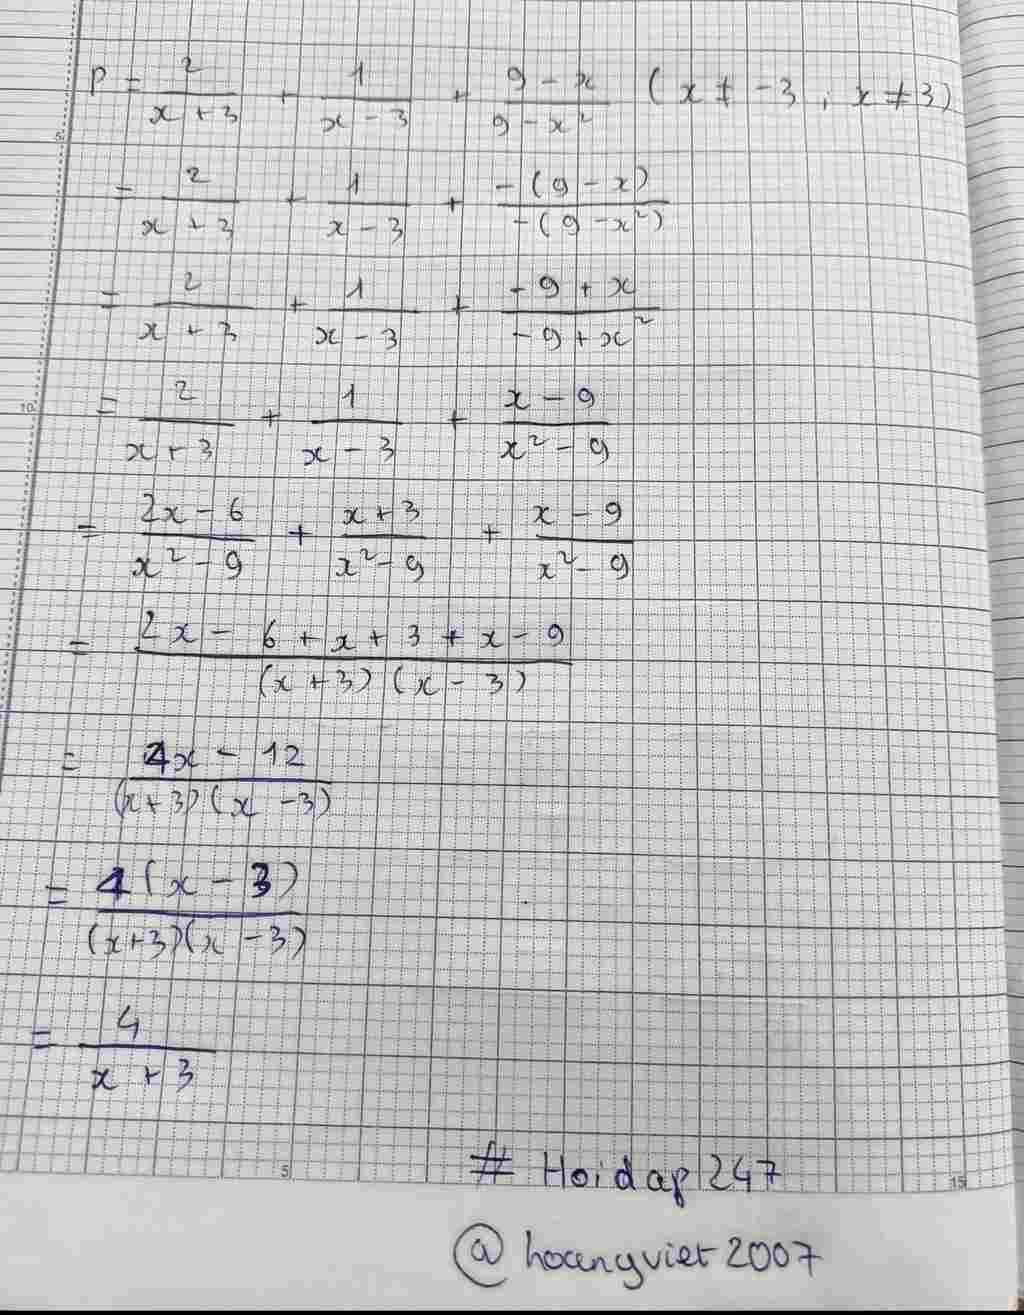 P = 2/(x + 3) + 1/(x - 3) + (9 - x)/(9 - x²) (x ≠ -3 ; x ≠ 3)
= 2/(x + 3) + 1/(x - 3) + -(9 - x)/-(9 - x²)
= 2/(x + 3) + 1/(x - 3) + (-9 + x)/(-9 + x²)
= 2/(x + 3) + 1/(x - 3) + (x - 9)/(x² - 9)
= (2x - 6)/(x² - 9) + (x + 3)/(x² - 9) + (x - 9)/(x² - 9)
= (2x - 6 + x + 3 + x - 9)/((x + 3)(x - 3))
= (4x - 12)/((x + 3)(x - 3))
= 4(x - 3)/((x + 3)(x - 3))
= 4/(x + 3)
# Hoidap247
@hoangviet2007
5
10
5
15